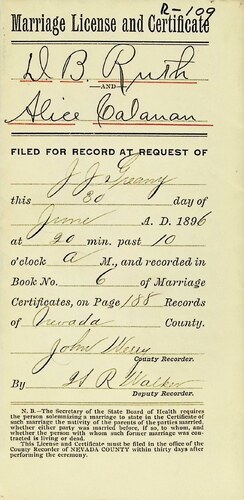 R-109
Marriage License and Certificate
D. B. Ruth
—AND—
Alice Calanan
FILED FOR RECORD AT REQUEST OF
J. J.
this 30 day of
June A. D. 1896
at 20 min. past 10
o'clock A M., and recorded in
Book No. 6 of Marriage
Certificates, on Page 188 Records
of Nevada County.
John Werry
County Recorder.
By R Walker
Deputy Recorder.
N. B.—The Secretary of the State Board of Health requires
the person solemnizing a marriage to state in the Certificate of
such marriage the nativity of the parents of the parties married,
whether either party was married before, if so, to whom, and
whether the person with whom such former marriage was con-
tracted is living or dead.
This License and Certificate must be filed in the office of the
County Recorder of NEVADA COUNTY within thirty days after
performing the ceremony.